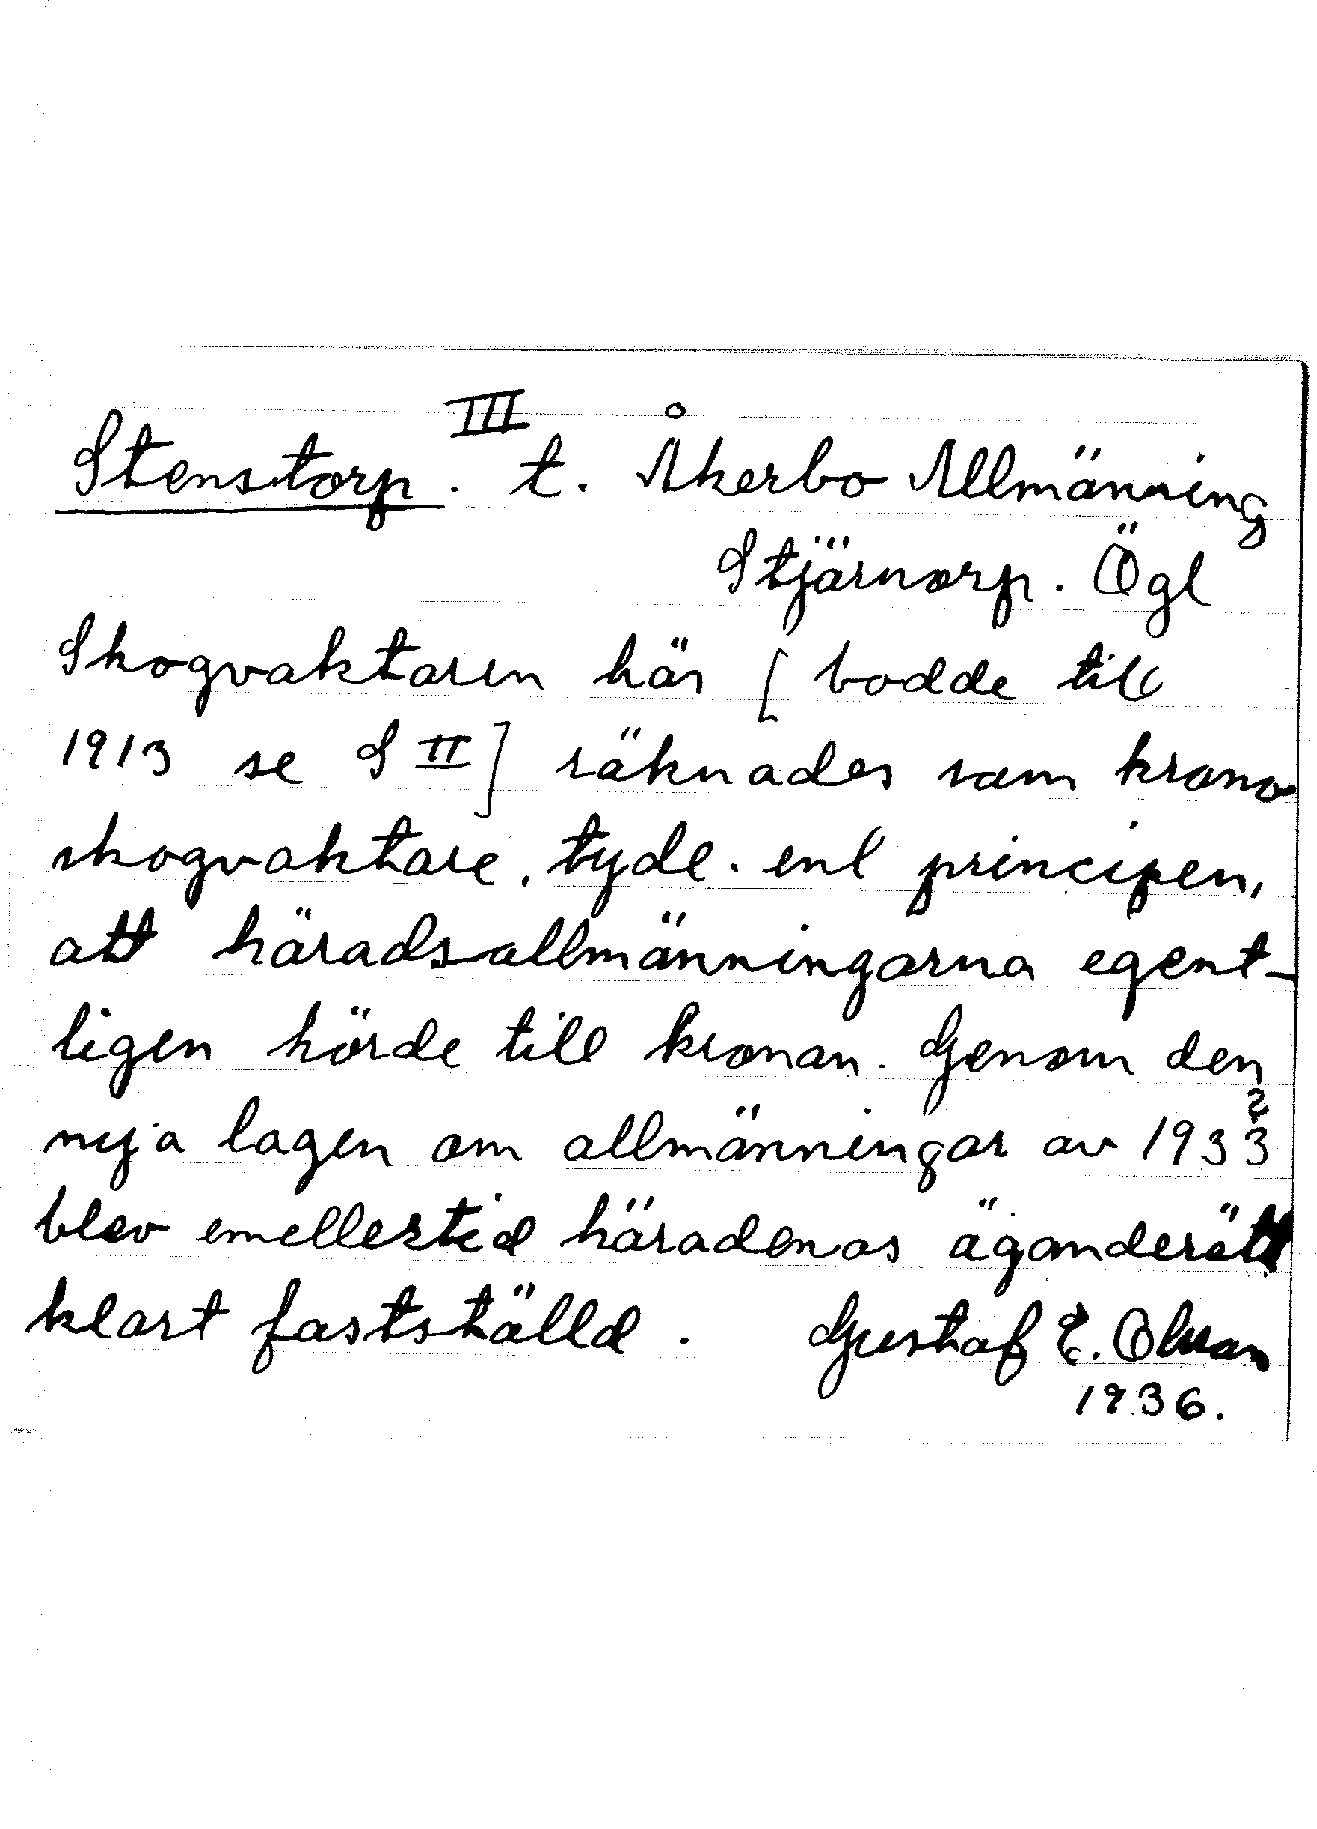 Stenstorp III. t. Åkerbo Allmänning
Stjärnorp. Ögl
Skogvaktaren här [ bodde till
1913 se S II ] räknades som krono
skogvaktare, tyde. enl principen,
att häradsallmänningarna egent-
ligen hörde till kronan. Genom den
2
nya lagen om allmänningar av 1933
blev emellertid häradenas äganderätt
klart fastställd. Gustaf E. Olson
1936.